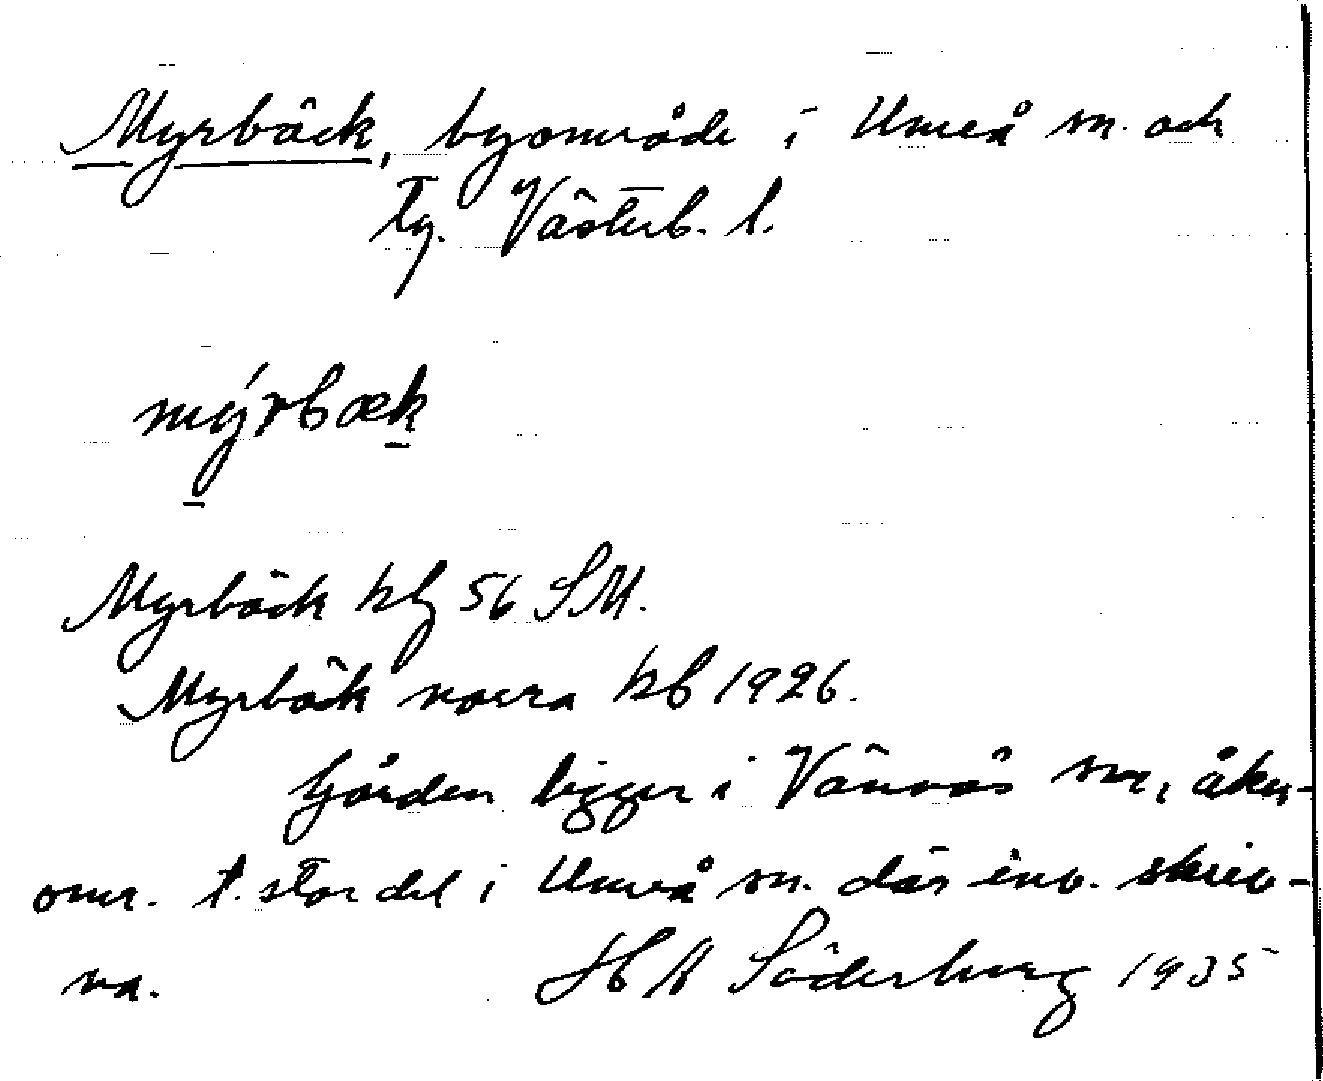 Myrbäck, byområde i Umeå sn. och
tg. Västerb. l.
mýrbæk
Myrbäck hfl 56 SM.
Myrbäck norra kb 1926.
Gården ligger i Vännäs sn, åker-
omr. t. stor del i Umeå sn. där inv. skriv-
na. H A Söderberg 1935